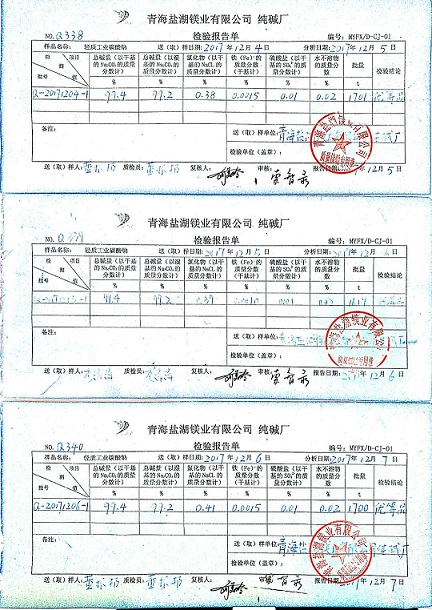 青海盐湖镁业有限公司 纯碱厂
NO. Q338 检验报告单 编号: MYFX/D-CJ-01
样品名称: 轻质工业碳酸钠 送(取)样日期: 2017年12月4日 分析日期: 2017年12月5日
检测 项目 批号 总碱量(以干基的Na₂CO₃的质量分数计) 总碱量(以湿基的Na₂CO₃的质量分数计) 氯化物(以干基的NaCl质量分数计) 铁(Fe)的质量分数(干基计) 硫酸盐(以干基SO₄²⁻的质量分数计) 水不溶物的质量分数 批量 检验结论
% % % % % % t
Q-20171204-1 99.4 99.2 0.38 0.0015 0.01 0.02 1701 优等品
备注: 送(取)样单位:
检验单位(盖章):
送(取)样人: 质检员: 复核人: 审核: 12月5日
青海盐湖镁业有限公司 纯碱厂
NO. Q339 检验报告单 编号: MYFX/D-CJ-01
样品名称: 轻质工业碳酸钠 送(取)样日期: 2017年12月5日 分析日期: 2017年12月6日
检测 项目 批号 总碱量(以干基的Na₂CO₃的质量分数计) 总碱量(以湿基的Na₂CO₃的质量分数计) 氯化物(以干基的NaCl质量分数计) 铁(Fe)的质量分数(干基计) 硫酸盐(以干基SO₄²⁻的质量分数计) 水不溶物的质量分数 批量 检验结论
% % % % % % t
99.4 99.2 0.39 0.01
备注: 送(取)样单位:
检验单位(盖章):
送(取)样人: 质检员: 复核人: 审核: 报告日期: 2017年12月6日
青海盐湖镁业有限公司 纯碱厂
NO. Q340 检验报告单 编号: MYFX/D-CJ-01
样品名称: 轻质工业碳酸钠 送(取)样日期: 2017年12月6日 分析日期: 2017年12月7日
检测 项目 批号 总碱量(以干基的Na₂CO₃的质量分数计) 总碱量(以湿基的Na₂CO₃的质量分数计) 氯化物(以干基的NaCl质量分数计) 铁(Fe)的质量分数(干基计) 硫酸盐(以干基SO₄²⁻的质量分数计) 水不溶物的质量分数 批量 检验结论
% % % % % % t
Q-20171206-1 99.4 99.2 0.41 0.0015 0.01 0.02 1700 优等品
备注: 送(取)样单位:
检验单位(盖章):
送(取)样人: 质检员: 复核人: 报告日期: 2017年12月7日